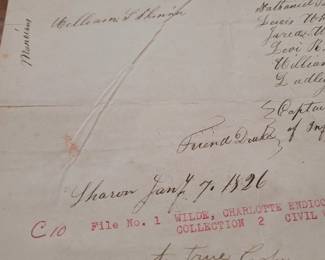 Manning
William S Skinner
Nathaniel
Lewis W
Jared
Levi
William
Dudley
Captain
of Inf
Friend Drake
Sharon Jany 7. 1826
C10 File No. 1 WILDE, CHARLOTTE ENDICO
COLLECTION 2 CIVIL
A true Copy